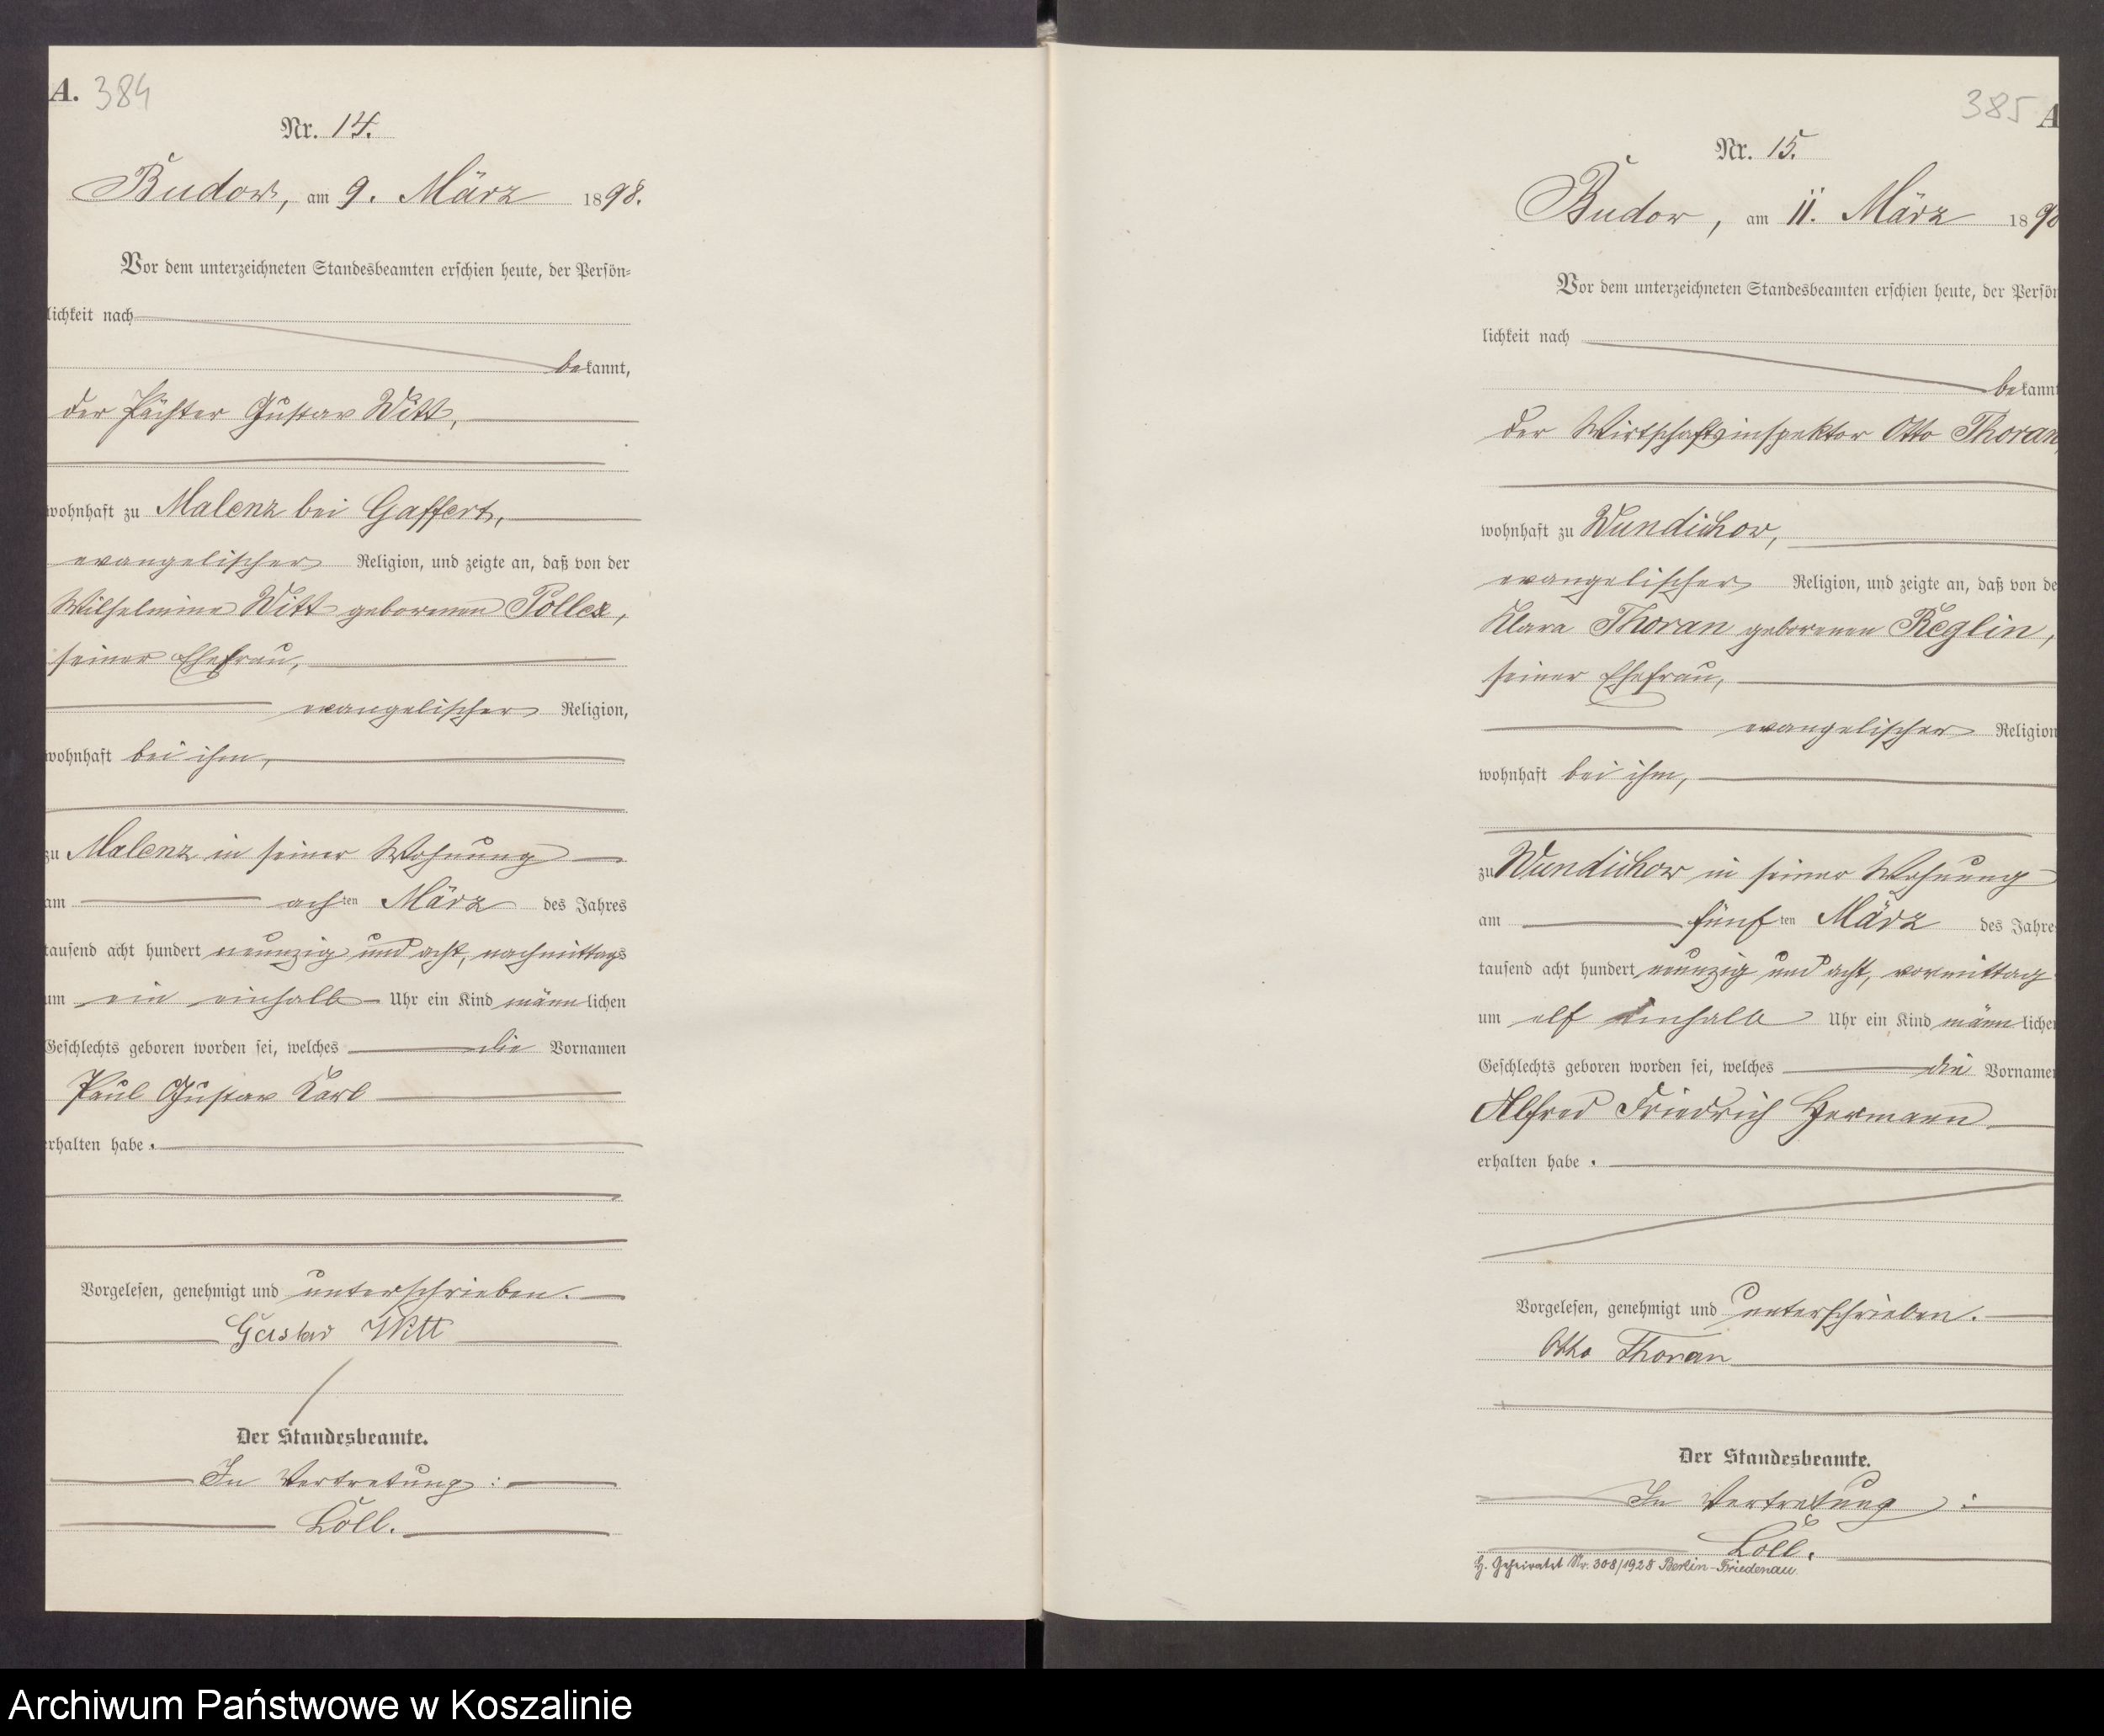 A. 384
Nr. 14.
Budow, am 9. März 1898.
Vor dem unterzeichneten Standesbeamten erschien heute, der Persön-
lichkeit nach
bekannt,
der Pächter Gustav Witt,
wohnhaft zu Malenz bei Gaffert,
evangelischer Religion, und zeigte an, daß von der
Wilhelmine Witt geborenen Pollex,
seiner Ehefrau,
evangelischer Religion,
wohnhaft bei ihm,
zu Malenz in seiner Wohnung
am achten März des Jahres
tausend acht hundert neunzig und acht, nachmittags
um ein einhalb Uhr ein Kind männlichen
Geschlechts geboren worden sei, welches die Vornamen
Paul Gustav Karl
erhalten habe.
Vorgelesen, genehmigt und unterschrieben.
Gustav Witt
Der Standesbeamte.
In Vertretung:
Löll.
385 A
Nr. 15.
Budow, am 11. März 189
Vor dem unterzeichneten Standesbeamten erschien heute, der Persön
lichkeit nach
bekannt
der Wirtschaftsinspektor Otto Thoran,
wohnhaft zu Wundichow,
evangelischer Religion, und zeigte an, daß von de
Klara Thoran geborenen Reglin,
seiner Ehefrau,
evangelischer Religion
wohnhaft bei ihm,
zu Wundichow in seiner Wohnung
am fünften März des Jahre
tausend acht hundert neunzig und acht, vormittag
um elf einhalb Uhr ein Kind männliche
Geschlechts geboren worden sei, welches die Vorname
Alfred Friedrich Hermann
erhalten habe.
Vorgelesen, genehmigt und unterschrieben.
Otto Thoran
Der Standesbeamte.
In Vertretung:
Löll.
H. Geheiratet Nr. 308/1928 Berlin-Friedenau.
Archiwum Państwowe w Koszalinie